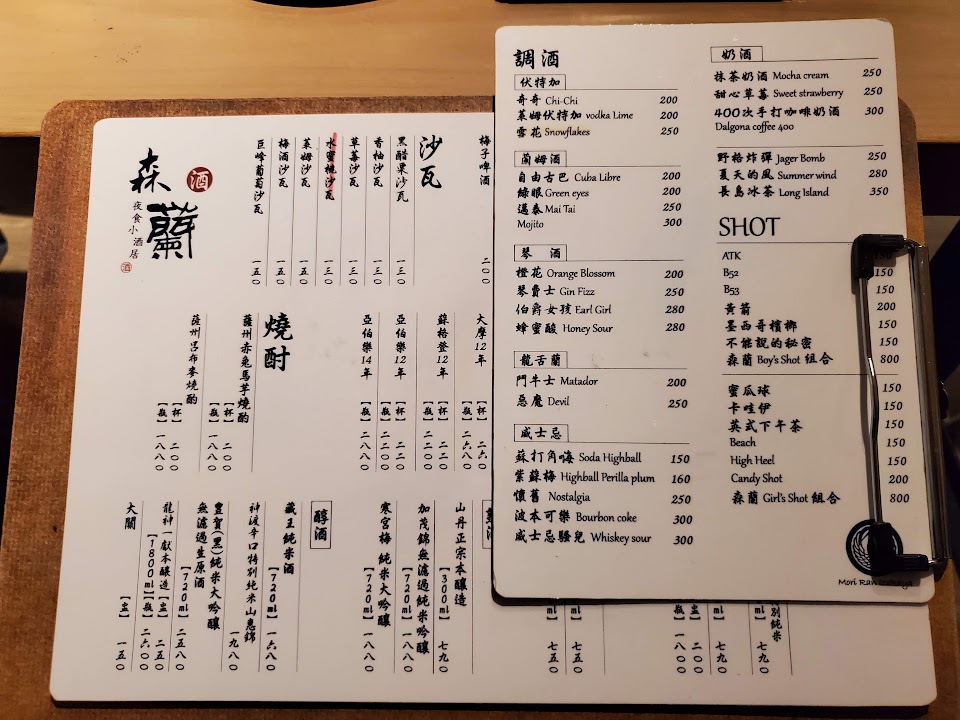 調酒
伏特加
奇奇 Chi-Chi 200
萊姆伏特加 vodka Lime 200
雪花 Snowflakes 250
蘭姆酒
自由古巴 Cuba Libre 200
綠眼 Green eyes 200
邁泰 Mai Tai 250
Mojito 300
琴酒
橙花 Orange Blossom 200
琴費士 Gin Fizz 250
伯爵女孩 Earl Girl 280
蜂蜜酸 Honey Sour 280
龍舌蘭
鬥牛士 Matador 200
惡魔 Devil 250
威士忌
蘇打角嗨 Soda Highball 150
紫蘇梅 Highball Perilla plum 160
懷舊 Nostalgia 250
波本可樂 Bourbon coke 300
威士忌騷兒 Whiskey sour 300
奶酒
抹茶奶酒 Mocha cream 250
甜心草莓 Sweet strawberry 250
400次手打咖啡奶酒 300
Dalgona coffee 400
野格炸彈 Jager Bomb 250
夏天的風 Summer wind 280
長島冰茶 Long Island 350
SHOT
ATK 150
B52 150
B53 150
黃箭 200
墨西哥檳榔 150
不能說的秘密 150
森蘭 Boy's Shot 組合 800
蜜瓜球 150
卡哇伊 150
英式下午茶 150
Beach 150
High Heel 150
Candy Shot 200
森蘭 Girl's Shot 組合 800
梅子啤酒 二〇〇
沙瓦
黑醋栗沙瓦 一三〇
香柚沙瓦 一三〇
草莓沙瓦 一三〇
水蜜桃沙瓦 一三〇
萊姆沙瓦 一五〇
梅酒沙瓦 一五〇
巨峰葡萄沙瓦 一五〇
森蘭
酒
夜食小酒居
酒
大摩12年 【杯】 二六〇
【瓶】 二六八〇
蘇格登12年 【杯】 二二〇
【瓶】 二二〇〇
亞伯樂12年 【杯】 二二〇
【瓶】 二二〇〇
亞伯樂14年 【瓶】 二八八〇
燒酎
薩州赤兔馬芋燒酌 【杯】 二〇〇
【瓶】 一八八〇
薩州呂布麥燒酌 【杯】 二〇〇
【瓶】 一八八〇
山丹正宗本釀造 【300ml】 七九〇
加茂錦無濾過純米吟釀 【720ml】 一八八〇
寒宮梅 純米大吟釀 【720ml】 一八八〇
醇酒
藏王純米酒 【720ml】 一六八〇
神渡辛口特別純米山惠錦 一九八〇
豐賀(黑)純米大吟釀
無濾過生原酒 【720ml】 二五八〇
龍神一獻本釀造 【盅】 二五〇
【1800ml】【瓶】 二六〇〇
大關 【盅】 一五〇